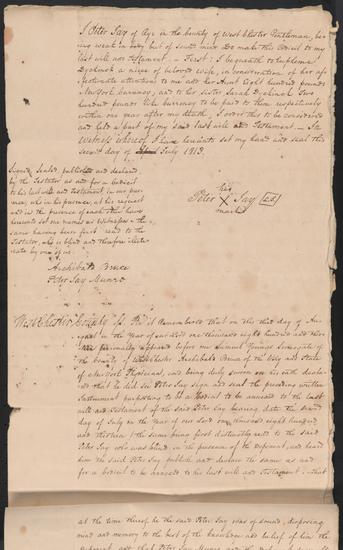 I Peter Jay of Rye in the County of West Chester Gentleman, be-
ing weak in body but of sound mind Do make this Codicil to my
last will and testament. — First: I bequeath to Euphemia
Dyckinck a niece of beloved wife, in consideration of her af-
fectionate attention to me and her Aunt Eight hundred pounds
New York currency, and to her sister Sarah Dyckinck Two
hundred pounds like currency to be paid to them respectively
within one year after my death, I order this to be considered
and held a part of my said last will and Testament. — In
Witness whereof I have hereunto set my hand and seal the
second day of July 1813.
Signed, Sealed, published and declared
by the Testator as and for a Codicil
to his last will and testament in our pres-
ence, who in his presence, at his request
and in the presence of each other have
hereunto set our names as Witnesses — the
same having been first read to the
Testator, who is blind and therefore illite-
rate by one of us.
his
Peter X Jay [LS]
mark
Archibald Bruce
Peter Jay Munro
West Chester County ss. Be it Remembered that on this third day of Au-
gust in the Year of our Lord one thousand eight hundred and thir-
teen personally appeared before me Samuel Youngs Surrogate of
the County of West Chester Archibald Bruce of the City and State
of New York Physician, and being duly sworn on his oath declar-
ed that he did see Peter Jay sign and seal the preceding written
Instrument purporting to be a Codicil to be annexed to the last
will and Testament of the said Peter Jay bearing date the second
day of July in the Year of our Lord one thousand eight hundred
and thirteen the same being first distinctly read to the said
Peter Jay who was blind in the presence of the deponent, and heard
him the said Peter Jay publish and declare the same as and
for a Codicil to be annexed to his last will and Testament, — that
at the time thereof he the said Peter Jay was of sound, disposing
mind and memory to the best of the knowledge and belief of him the
deponent and that Peter Jay Munro